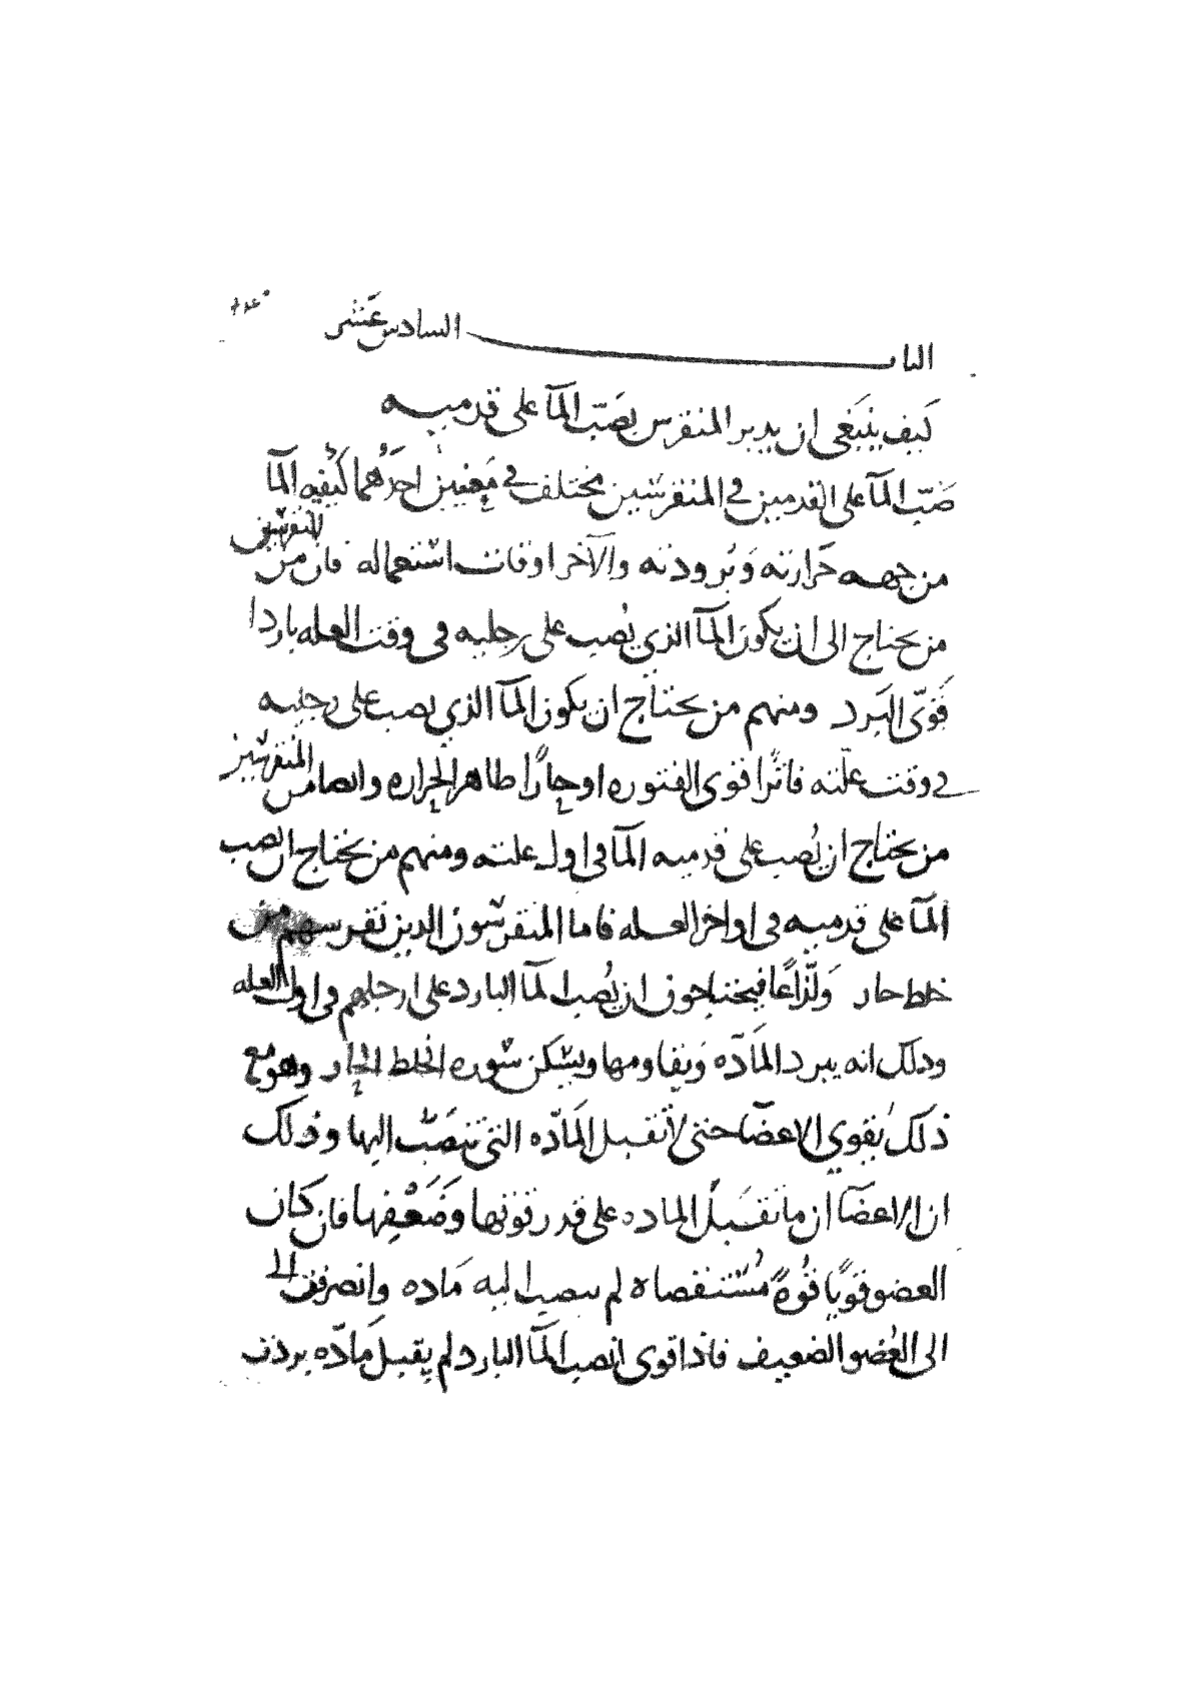 الباب السادس عشر
كيف ينبغي ان يدبر المنقرس بصب المآ على قدميه
صَبّ المآ على القدمين في المنقرسين مختلف في مَعنيين احدهما كيفيه المآ
من جهه حَرارته وَبُرودته والآخر اوقات استعماله فان من المنقرسين
من يحتاج الى ان يكون المآ الذي يُصب على رجليه فى وقت العله باردا
قَوىّ البَرد ومنهم من يحتاج ان يكون المآ الذي يصب على رجليه
في وقت علّته فاترًا قوى الفتوره او حارًا ظاهر الحراره وايضا من المنقرسين
من يحتاج ان يُصب على قدميه المآ فى اول علته ومنهم من يحتاج ان يصب
المآ على قدميه فى اواخر العله فاما المنقرسون الذين نقرسهم من
خلط حار وَلذّاعًا فيحتاجون ان يُصب المآ البارد على ارجلهم فى اول العله
وذلك انه يبرد المَادّه وَيقاومها ويسكن سَوره الخلط الحار وهو مع
ذلك يُقوي الاعضآ حتى لا تقبل المَادّه التي تنصَبّ اليها وذلك
ان الاعضآ انما تقبَل الماده على قدر قوتها وَضَعْفِها فان كان
العضو قويًا قُوةً مُستقصاة لم ينصب اليه مَاده وانصرفت الى
الى العُضو الضعيف فاذا قوى بصب المآ البارد لم يقبل مَادّه بردت